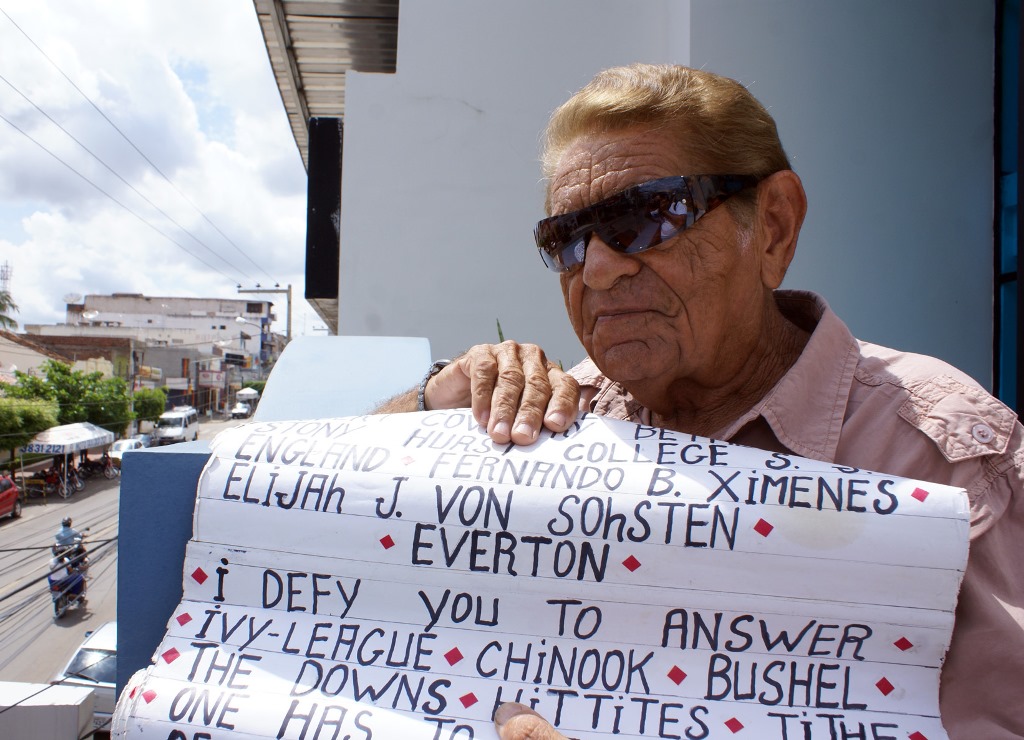 COLLEGE S. S.
ENGLAND ♦ FERNANDO B. XiMENES ♦
ELiJAh J. VON SOhSTEN ♦
♦ EVERTON ♦
♦ i DEFY YOU TO ANSWER ♦
♦ iVY-LEAGUE ♦ CHiNOOK ♦ BUSHEL ♦
♦ THE DOWNS ♦ HiTTiTES ♦ TiTHE
♦ ONE HAS TO